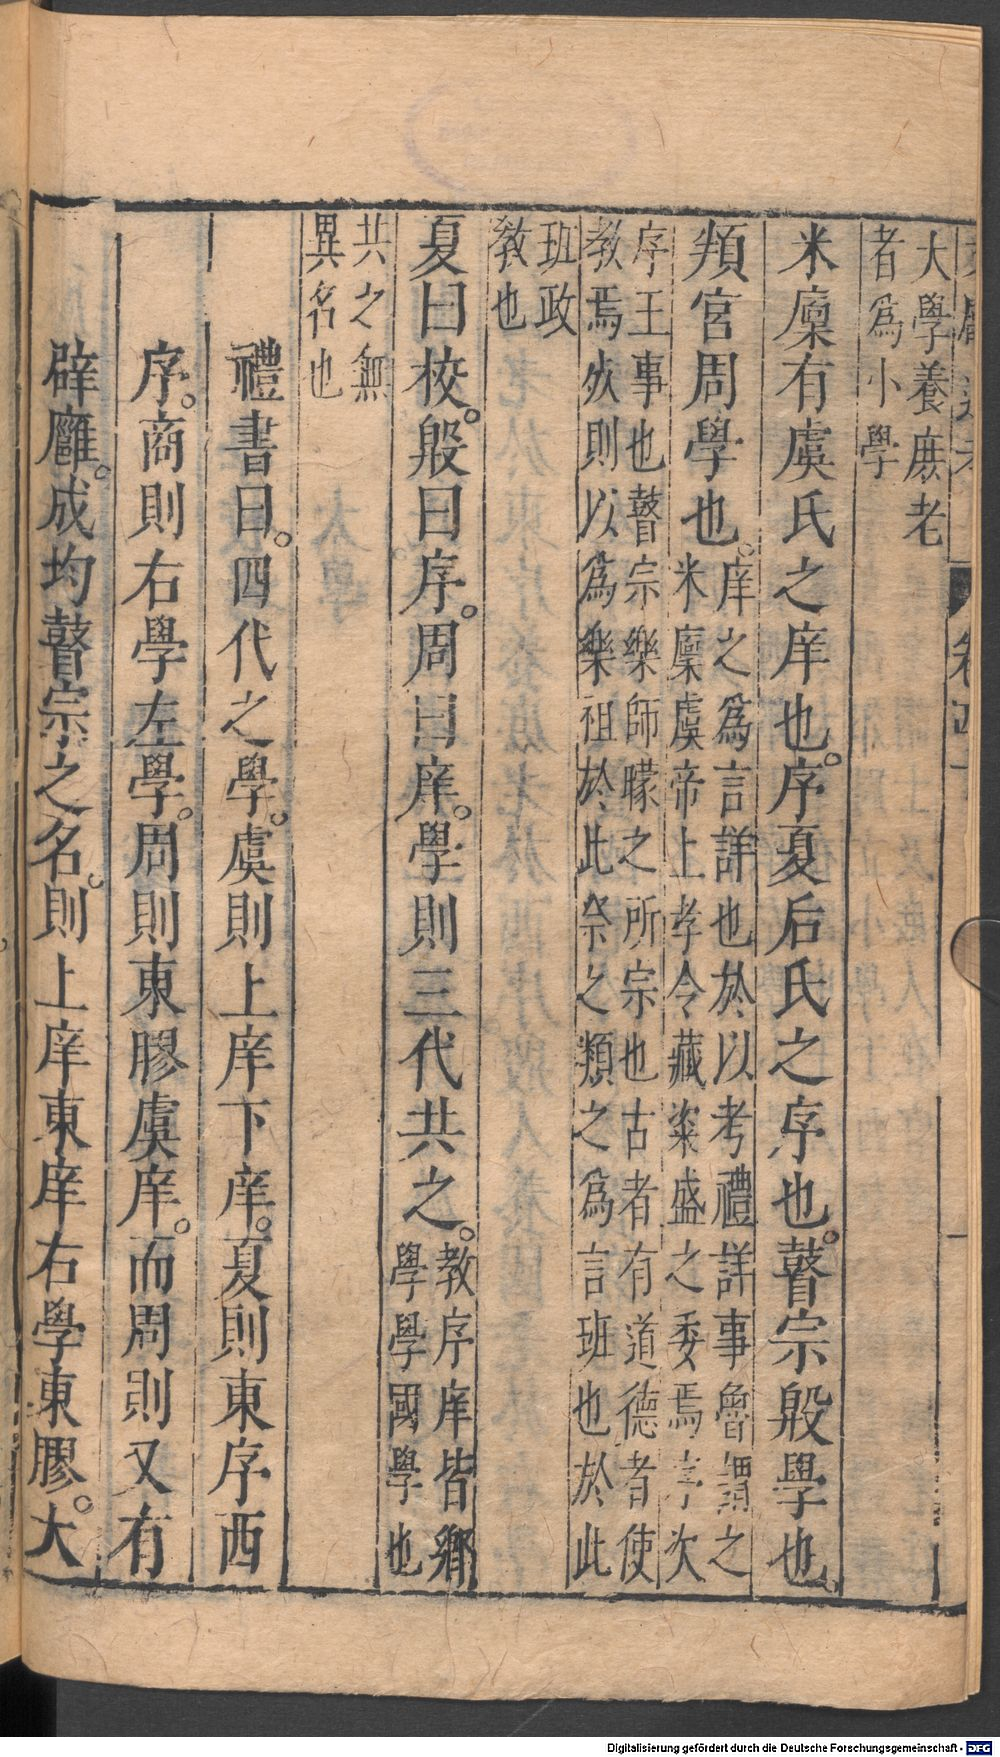 大學養庶老
者爲小學
米廩有虞氏之庠也。序夏后氏之序也。瞽宗殷學也、
頖宮周學也。
庠之爲言詳也於以考禮詳事魯謂之
米廩虞帝上孝令藏粢盛之委焉序次
序王事也瞽宗樂師矇之所宗也古者有道德者使
教焉歿則以爲樂祖於此祭之類之爲言班也於此
班政
敎也
夏曰校。殷曰序。周曰庠。學則三代共之。
教序庠皆鄉
學學國學也
共之無
異名也
禮書曰。四代之學。虞則上庠下庠。夏則東序西
序。商則右學左學。周則東膠虞庠。而周則又有
辟廱。成均瞽宗之名。則上庠東庠右學東膠。大
Digitalisierung gefördert durch die Deutsche Forschungsgemeinschaft - DFG